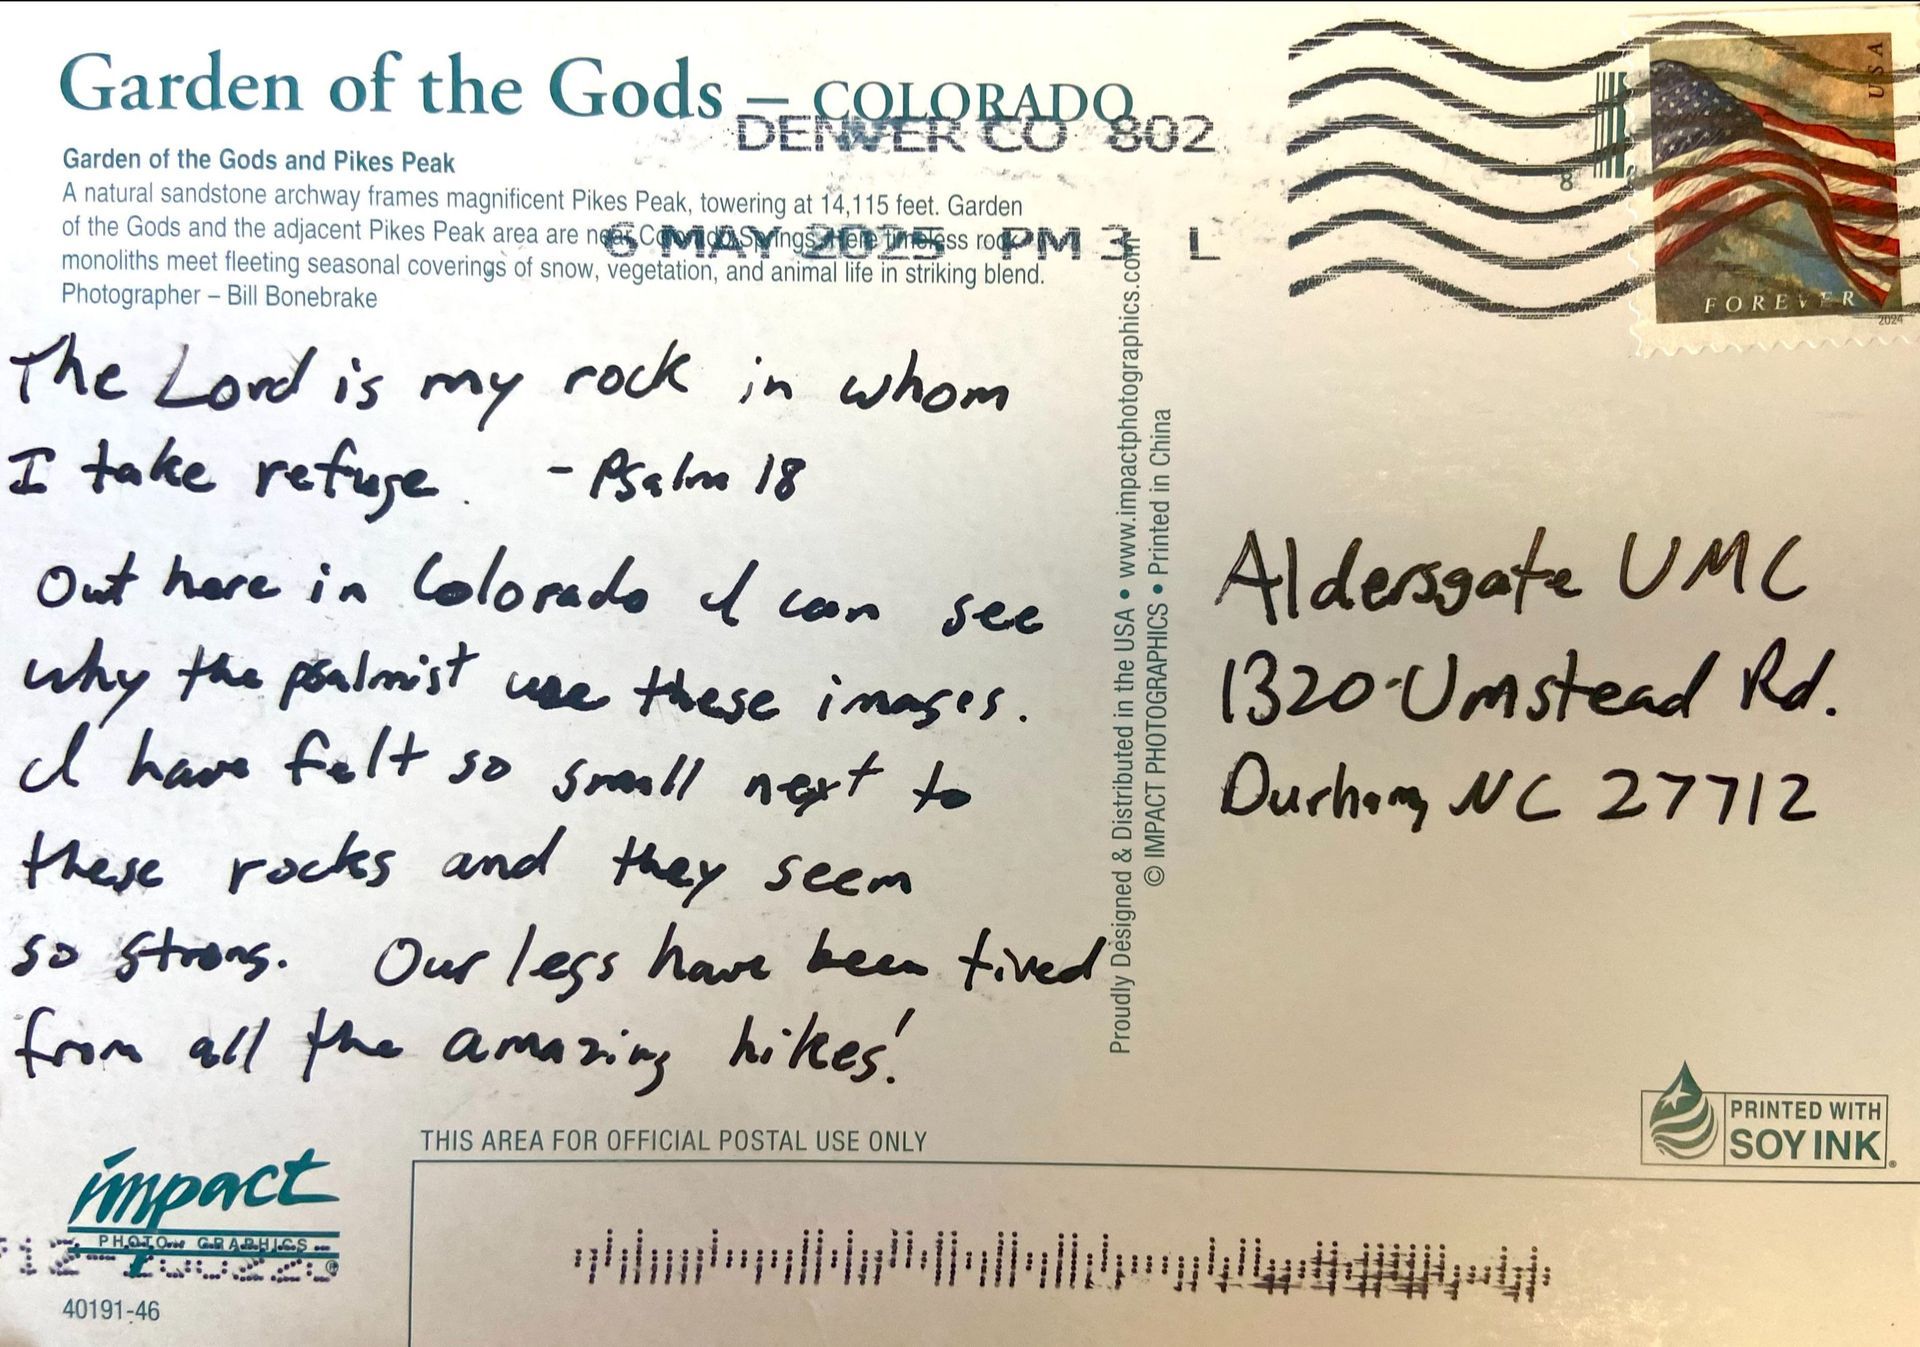 Garden of the Gods – COLORADO
DENVER CO 802
Garden of the Gods and Pikes Peak
A natural sandstone archway frames magnificent Pikes Peak, towering at 14,115 feet. Garden
of the Gods and the adjacent Pikes Peak area are near Colorado Springs. Here timeless rock
6 MAY 2025 PM 3 L
monoliths meet fleeting seasonal coverings of snow, vegetation, and animal life in striking blend.
Photographer – Bill Bonebrake
USA
FOREVER
2024
The Lord is my rock in whom
I take refuge. - Psalm 18
Out here in Colorado I can see
why the psalmist use these images.
I have felt so small next to
these rocks and they seem
so strong. Our legs have been tired
from all the amazing hikes!
Proudly Designed & Distributed in the USA • www.impactphotographics.com
© IMPACT PHOTOGRAPHICS • Printed in China
Aldersgate UMC
1320 Umstead Rd.
Durham, NC 27712
PRINTED WITH
SOY INK
THIS AREA FOR OFFICIAL POSTAL USE ONLY
impact
PHOTO GRAPHICS
40191-46